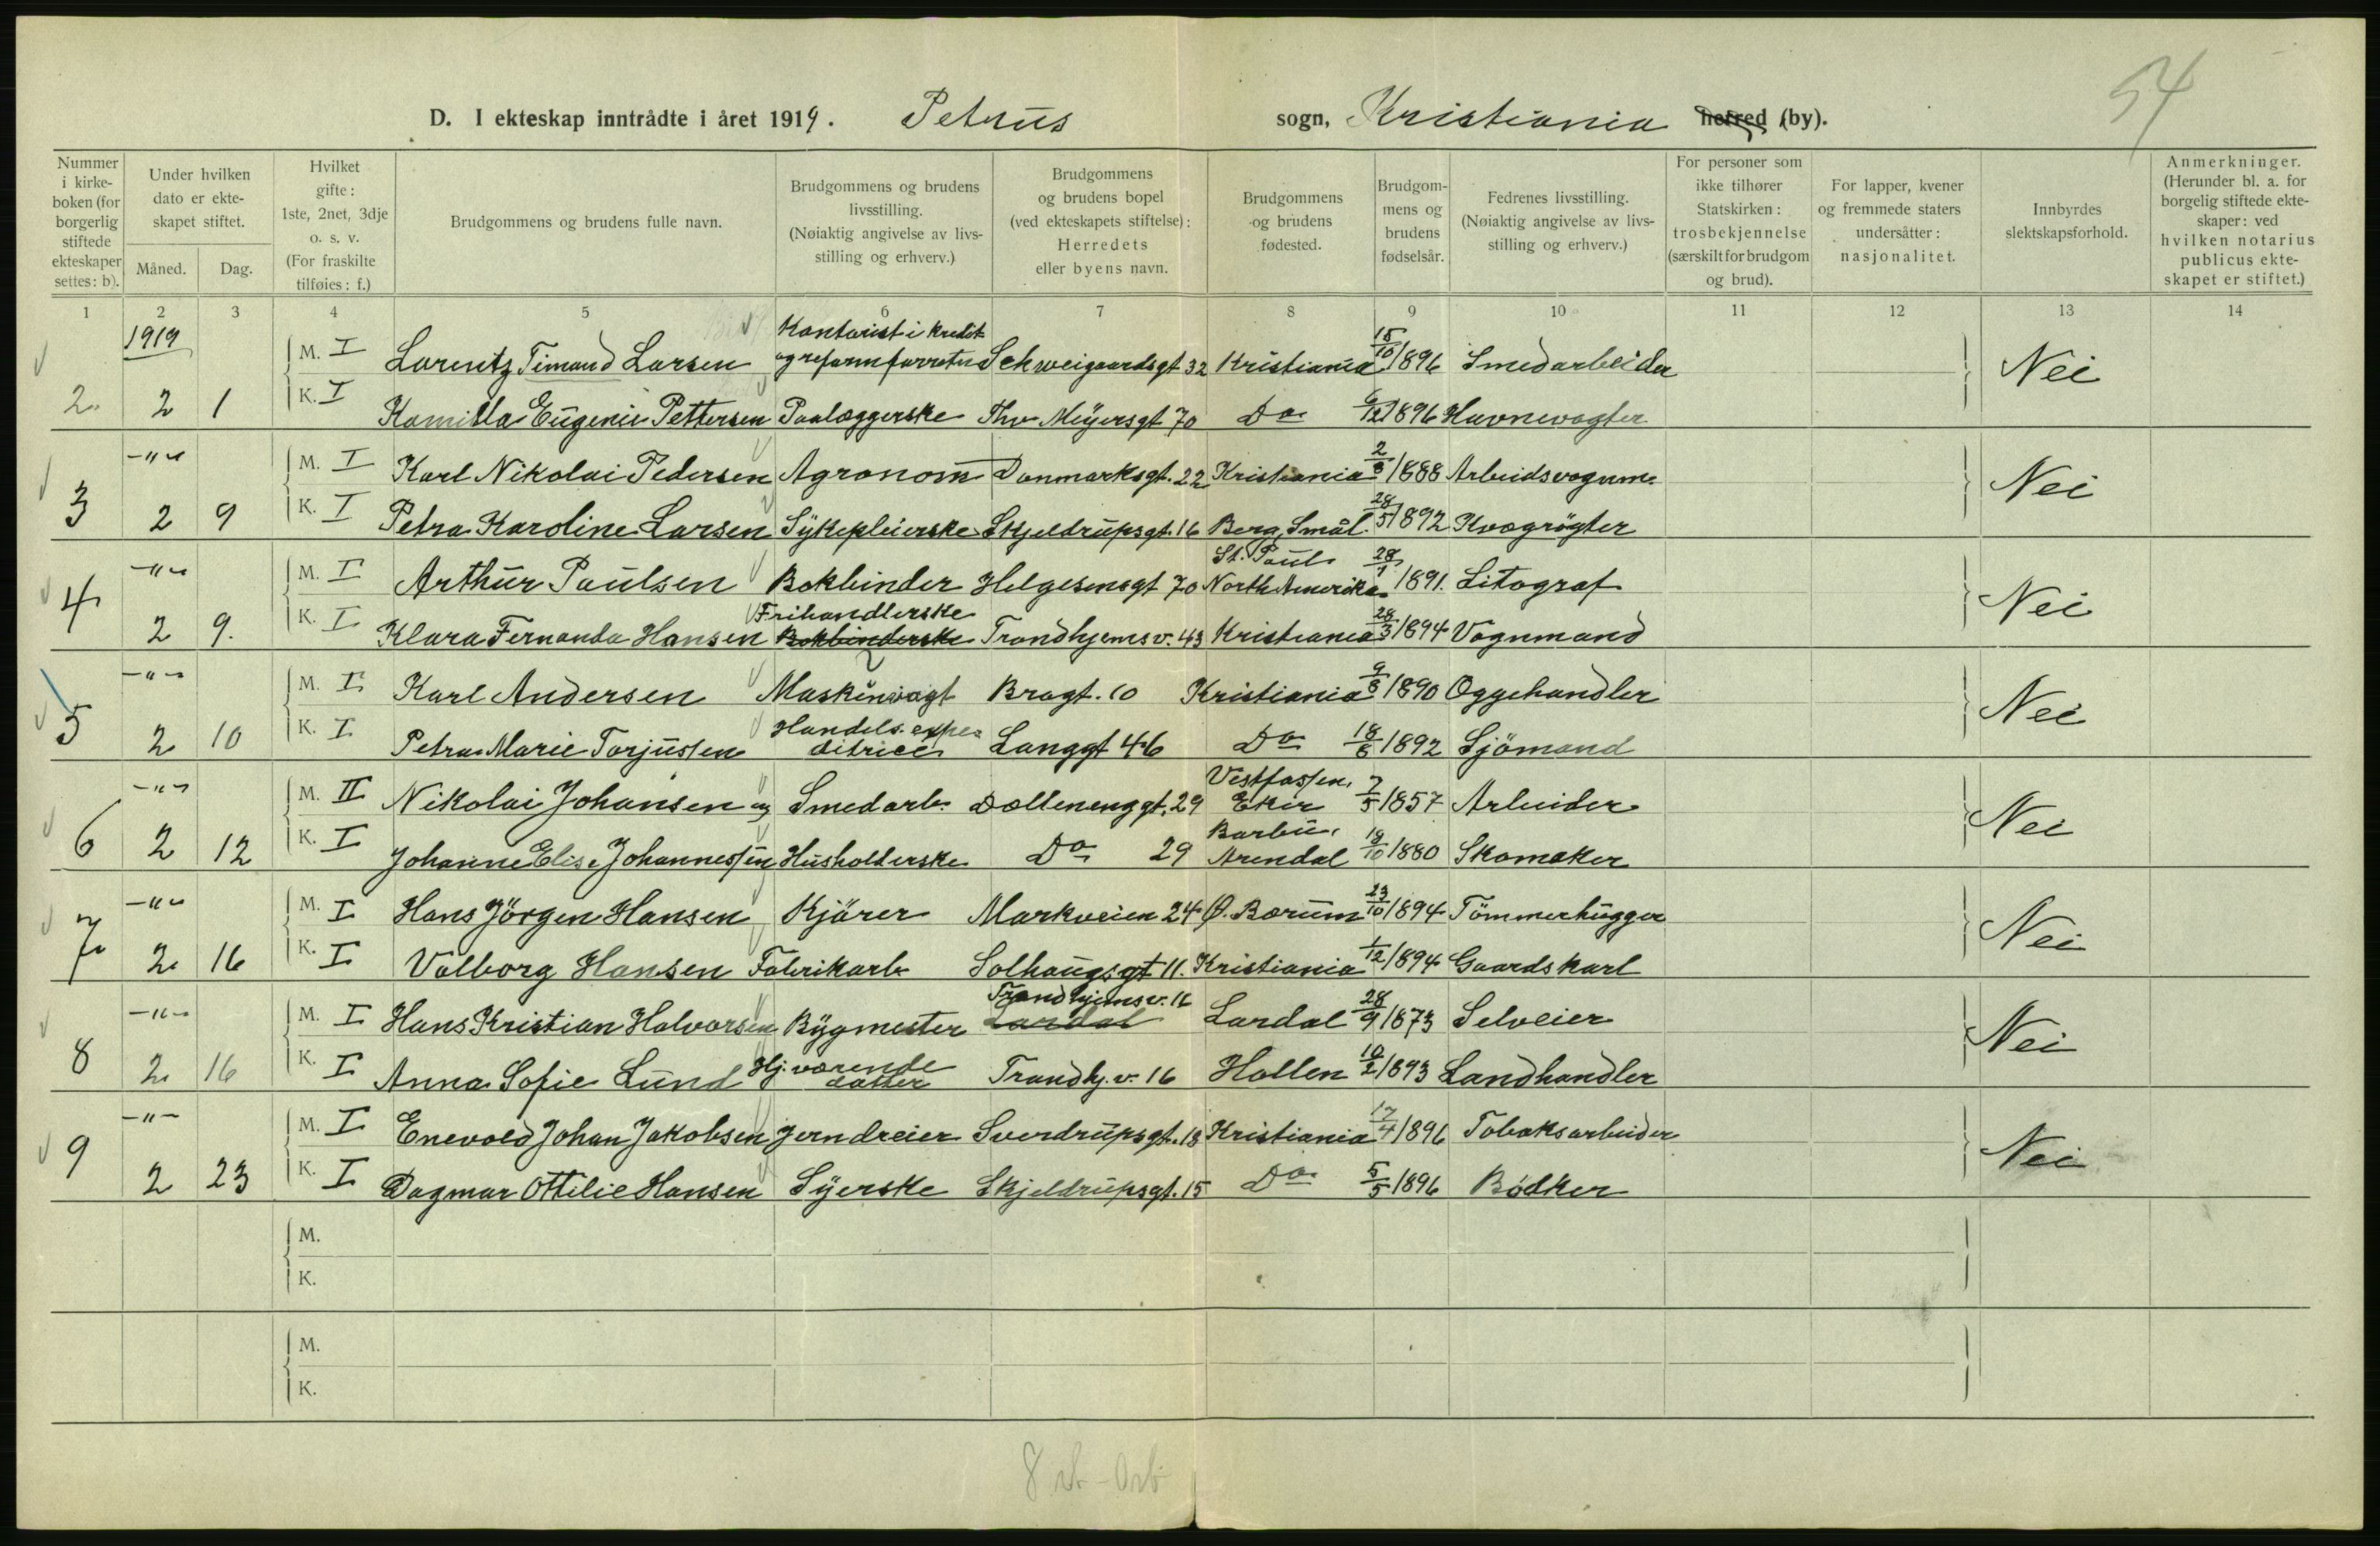 54
D. I ekteskap inntrådte i året 1919. Petrus sogn, Kristiania herred (by).
Nummer i kirkeboken (for borgerlig stiftede ekteskaper settes: b).
Under hvilken dato er ekteskapet stiftet.
Måned. Dag.
Hvilket gifte: 1ste, 2net, 3dje o. s. v. (For fraskilte tilføies: f.)
Brudgommens og brudens fulle navn.
Brudgommens og brudens livsstilling. (Nøiaktig angivelse av livsstilling og erhverv.)
Brudgommens og brudens bopel (ved ekteskapets stiftelse): Herredets eller byens navn.
Brudgommens og brudens fødested.
Brudgommens og brudens fødselsår.
Fedrenes livsstilling. (Nøiaktig angivelse av livsstilling og erhverv.)
For personer som ikke tilhører Statskirken: trosbekjennelse (særskilt for brudgom og brud).
For lapper, kvener og fremmede staters undersåtter: nasjonalitet.
Innbyrdes slektskapsforhold.
Anmerkninger. (Herunder bl. a. for borgelig stiftede ekteskaper: ved hvilken notarius publicus ekteskapet er stiftet.)
1 2 3 4 5 6 7 8 9 10 11 12 13 14
1919 M. I Lorentz Timand Larsen Kontorist i kredit og reformforretn Schweigaardsgt 32 Kristiania 15/10 1896 Smedarbeider Nei
2 2 1 K. I Kamilla Eugenie Pettersen Paalæggerske Thv. Meÿersgt 70 Do 6/12 1896 Havnevogter
-"- M. I Karl Nikolai Pedersen Agronom Danmarksgt. 22 Kristiania 2/8 1888 Arbeidsvognm. Nei
3 2 9 K. I Petra Karoline Larsen Sÿkepleierske Skjeldrupsgt. 16 Berg, Smål. 28/5 1892 Kvægrögter
-"- M. I Arthur Paulsen Bokbinder Helgesensgt 70 St. Paul North Amerika 28/1 1891. Litograf Nei
4 2 9. K. I Klara Fernanda Hansen Frihandlerske Bokbinderske Trondhjemsv. 43 Kristiania 28/3 1894 Vognmand
-"- M. I Karl Andersen Maskinvagt Bragt. 10 Kristiania 9/8 1890 Oggehandler Nei
5 2 10 K. I Petra Marie Torjussen Handels. expeditrice Langgt 46 Do 18/8 1892 Sjömand
-"- M. II Nikolai Johansen og Smedarb. Dællenenggt. 29 Vestfossen, Eker 7/5 1857 Arbeider Nei
6 2 12 K. I Johanne Elise Johannessen Husholderske Do 29 Barbu, Arendal 19/10 1880 Skomaker
-"- M. I Hans Jörgen Hansen Kjörer Markveien 24 Ø. Bærum 23/10 1894 Tömmerhugger Nei
7 2 16 K. I Valborg Hansen Fabrikarb Solhaugsgt 11. Kristiania 1/12 1894 Gaardskarl
-"- M. I Hans Kristian Halvorsen Bÿgmester Trondhjemsv. 16 Lardal Lardal 28/9 1873 Selveier Nei
8 2 16 K. I Anna Sofie Lund Hj. værende datter Trondhj. v. 16 Hollen 10/2 1893 Landhandler
-"- M. I Enevold Johan Jakobsen Jerndreier Sverdrupsgt. 18 Kristiania 17/4 1896 Tobaksarbeider Nei
9 2 23 K. I Dagmar Ottilie Hansen Sÿerske Skjeldrupsgt. 15 Do 5/5 1896 Bødker
M.
K.
M.
K.